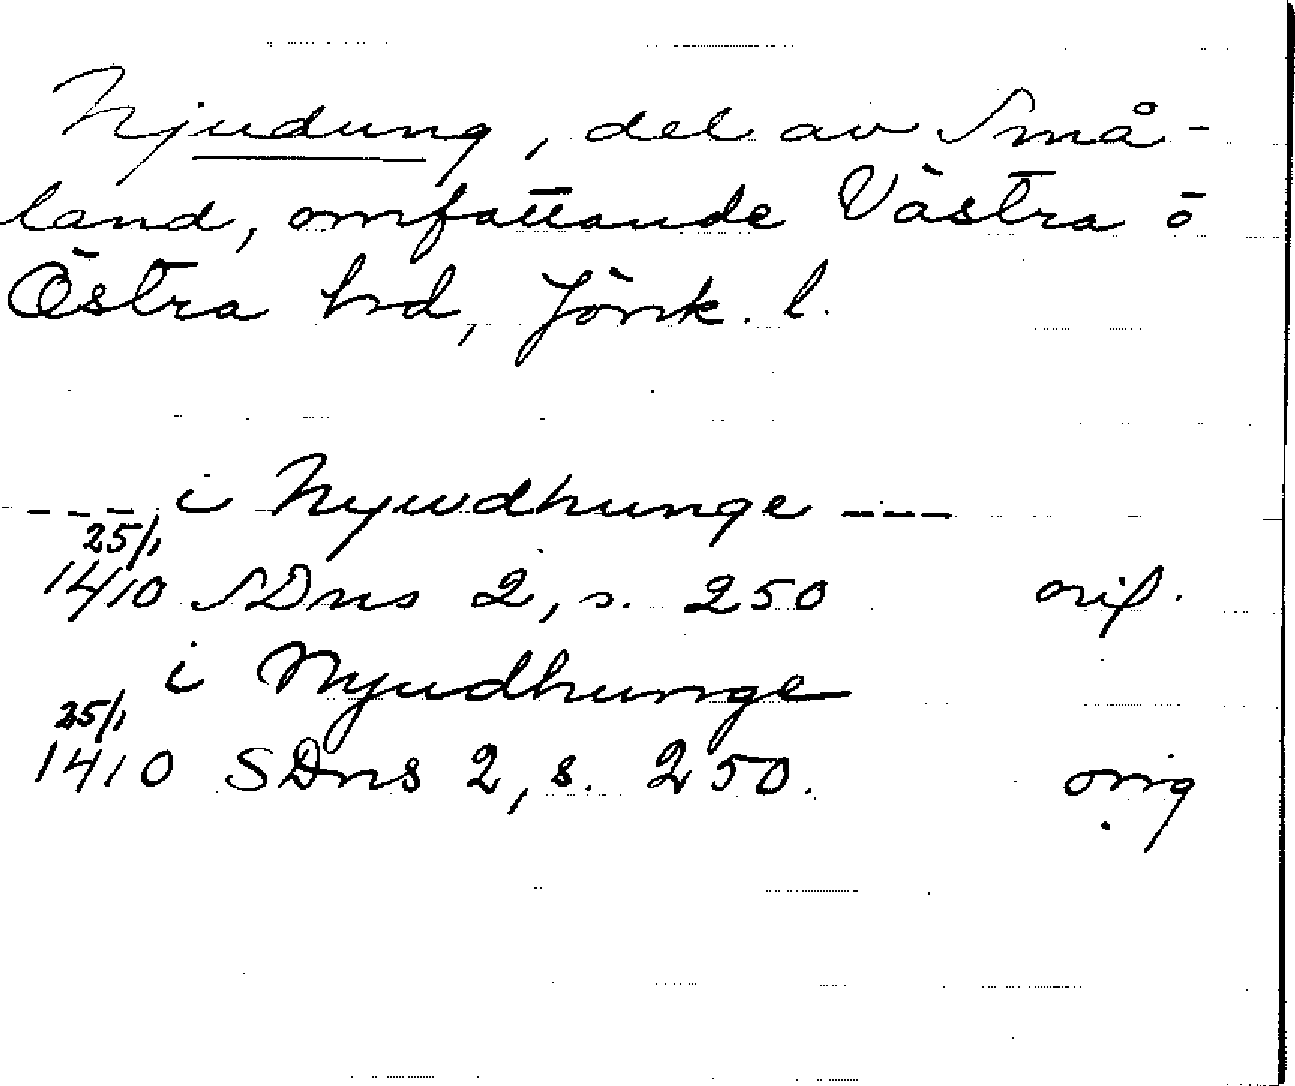 Njudung, del av Små-
land, omfattande Västra o
Östra hrd, Jönk. l.
--- i Nywdhunge ---
25/1
1410 SDns 2, s. 250 orig.
i Nyudhunge
25/1
1410 SDns 2, s. 250. orig.